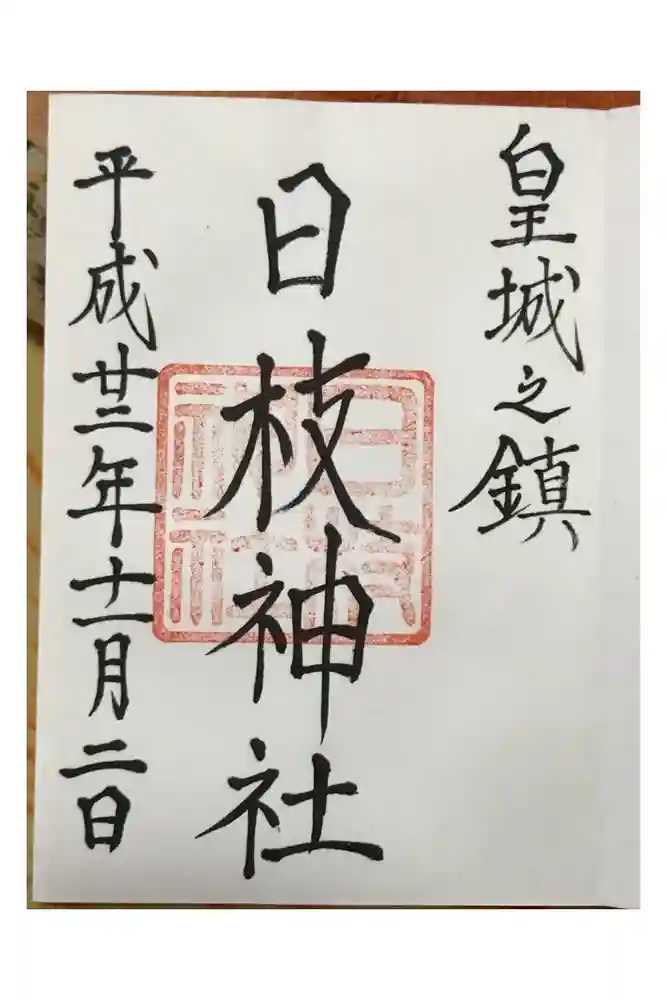 皇城之鎮
日枝神社
平成廿三年十一月二日
日枝神社